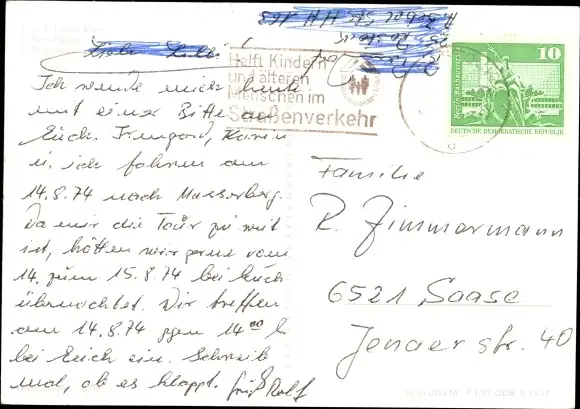 Ich wende mich heute
mit einer Bitte an
Euch. Irmgard, Karin
u. ich fahren am
14.8.74 nach Masserberg.
Da mir die Tour zu weit
ist, hätten wir gerne vom
14. zum 15.8.74 bei Euch
übernachtet. Wir treffen
am 14.8.74 gegen 14⁰⁰ h
bei Euch ein. Schreib
mal, ob es klappt. Gruß Rolf
Helft Kindern
und älteren
Menschen im
Straßenverkehr
10
DEUTSCHE DEMOKRATISCHE REPUBLIK
Familie
R. Zimmermann
6521 Saasa
Jenaer Str. 40